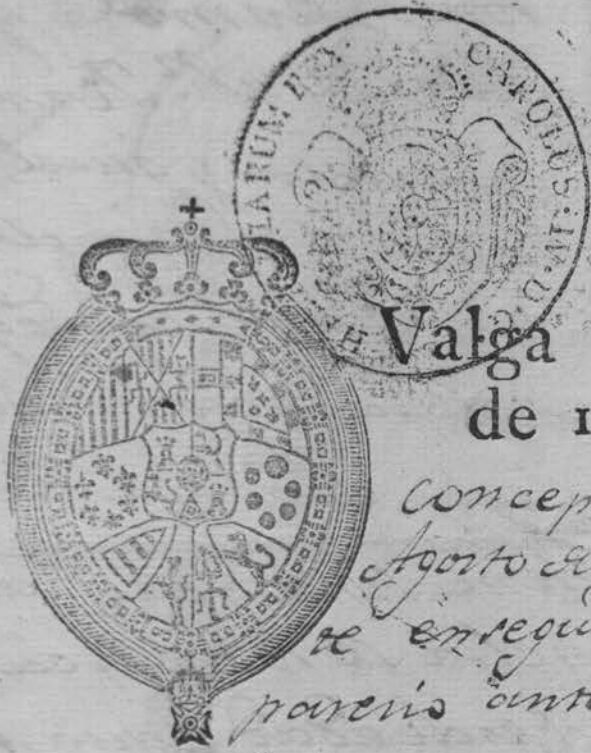 CAROLUS·IV·D·G· HI ARUM REX·
Valga
de 1
concep
Agosto
de ensegu
parecio ante